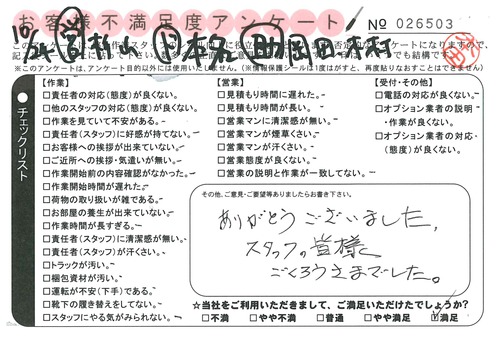 お客様不満足度アンケート
No 026503
10/24
※このアンケートは、アンケート目的以外には使用いたしません。(※情報保護シールは1度はがすと、再度貼りなおすことはできません)
チェックリスト
【作業】
□責任者の対応(態度)が良くない。
□他のスタッフの対応(態度)が良くない。
□作業を見ていて不安がある。
□責任者(スタッフ)に好感が持てない。
□お客様への挨拶が出来ていない。
□ご近所への挨拶・気遣いが無い。
□作業開始前の内容確認がなかった。
□作業開始時間が遅れた。
□荷物の取り扱いが雑である。
□お部屋の養生が出来ていない。
□作業時間が長すぎる。
□責任者(スタッフ)に清潔感が無い。
□責任者(スタッフ)が汗くさい。
□トラックが汚い。
□梱包資材が汚い。
□運転が不安(下手)である。
□靴下の履き替えをしてない。
□スタッフにやる気がみられない。
【営業】
□見積もり時間に遅れた。
□見積もり時間が長い。
□営業マンに清潔感が無い。
□営業マンが煙草くさい。
□営業マンが汗くさい。
□営業態度が良くない。
□営業の説明と作業が一致してない。
【受付・その他】
□電話の対応が良くない。
□オプション業者の説明・作業が良くない。
□オプション業者の対応・(態度)が良くない。
その他、ご意見・ご要望等ありましたらお書き下さい。
ありがとうございました。
スタッフの皆様
ごくろうさまでした。
☆当社をご利用いただきまして、ご満足いただけたでしょうか?
□不満 □やや不満 □普通 □やや満足 ☑満足